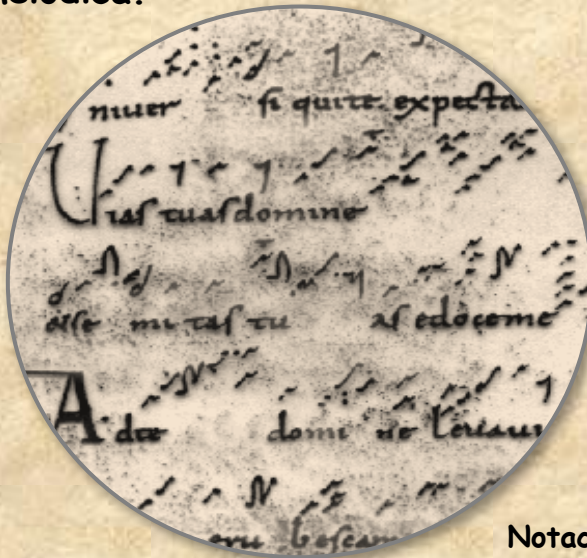 niuer si qui te expecta
Uias tuas domine
mi tas tu as edoceme
Adte domi ne leuaui
eru bescam
Notac